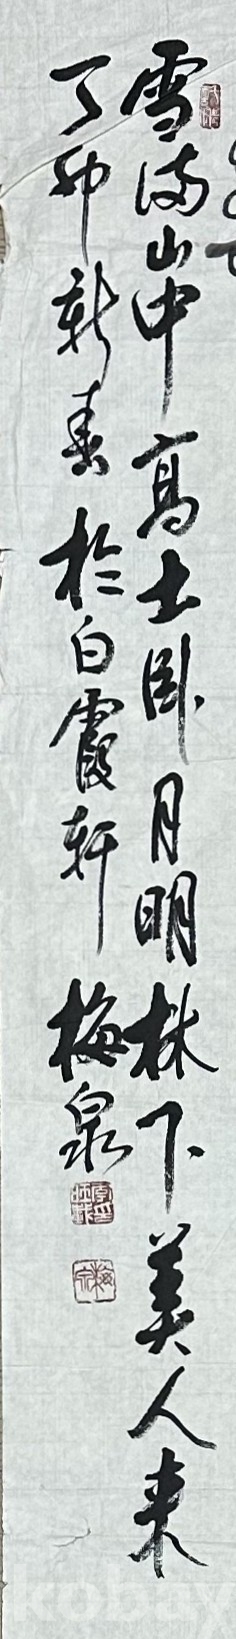 雪満山中高士臥月明林下美人来
丁卯新春於白霞軒 梅泉
kobay